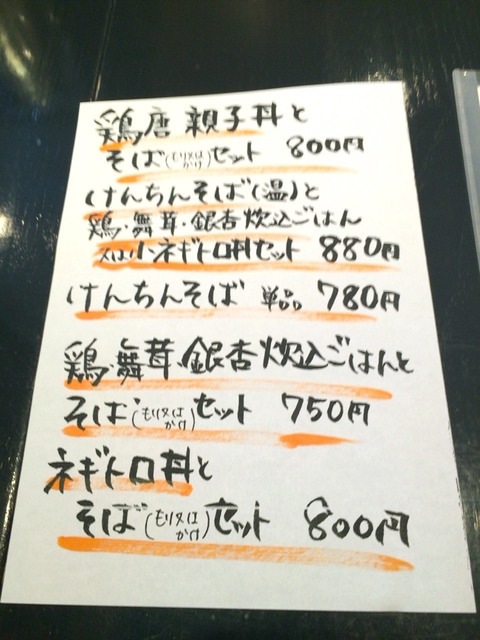 鶏唐親子丼と
そば(もり又はかけ)セット 800円
けんちんそば(温)と
鶏・舞茸・銀杏炊込ごはん
又は小ネギトロ丼セット 880円
けんちんそば 単品 780円
鶏・舞茸・銀杏炊込ごはんと
そば(もり又はかけ)セット 750円
ネギトロ丼と
そば(もり又はかけ)セット 800円